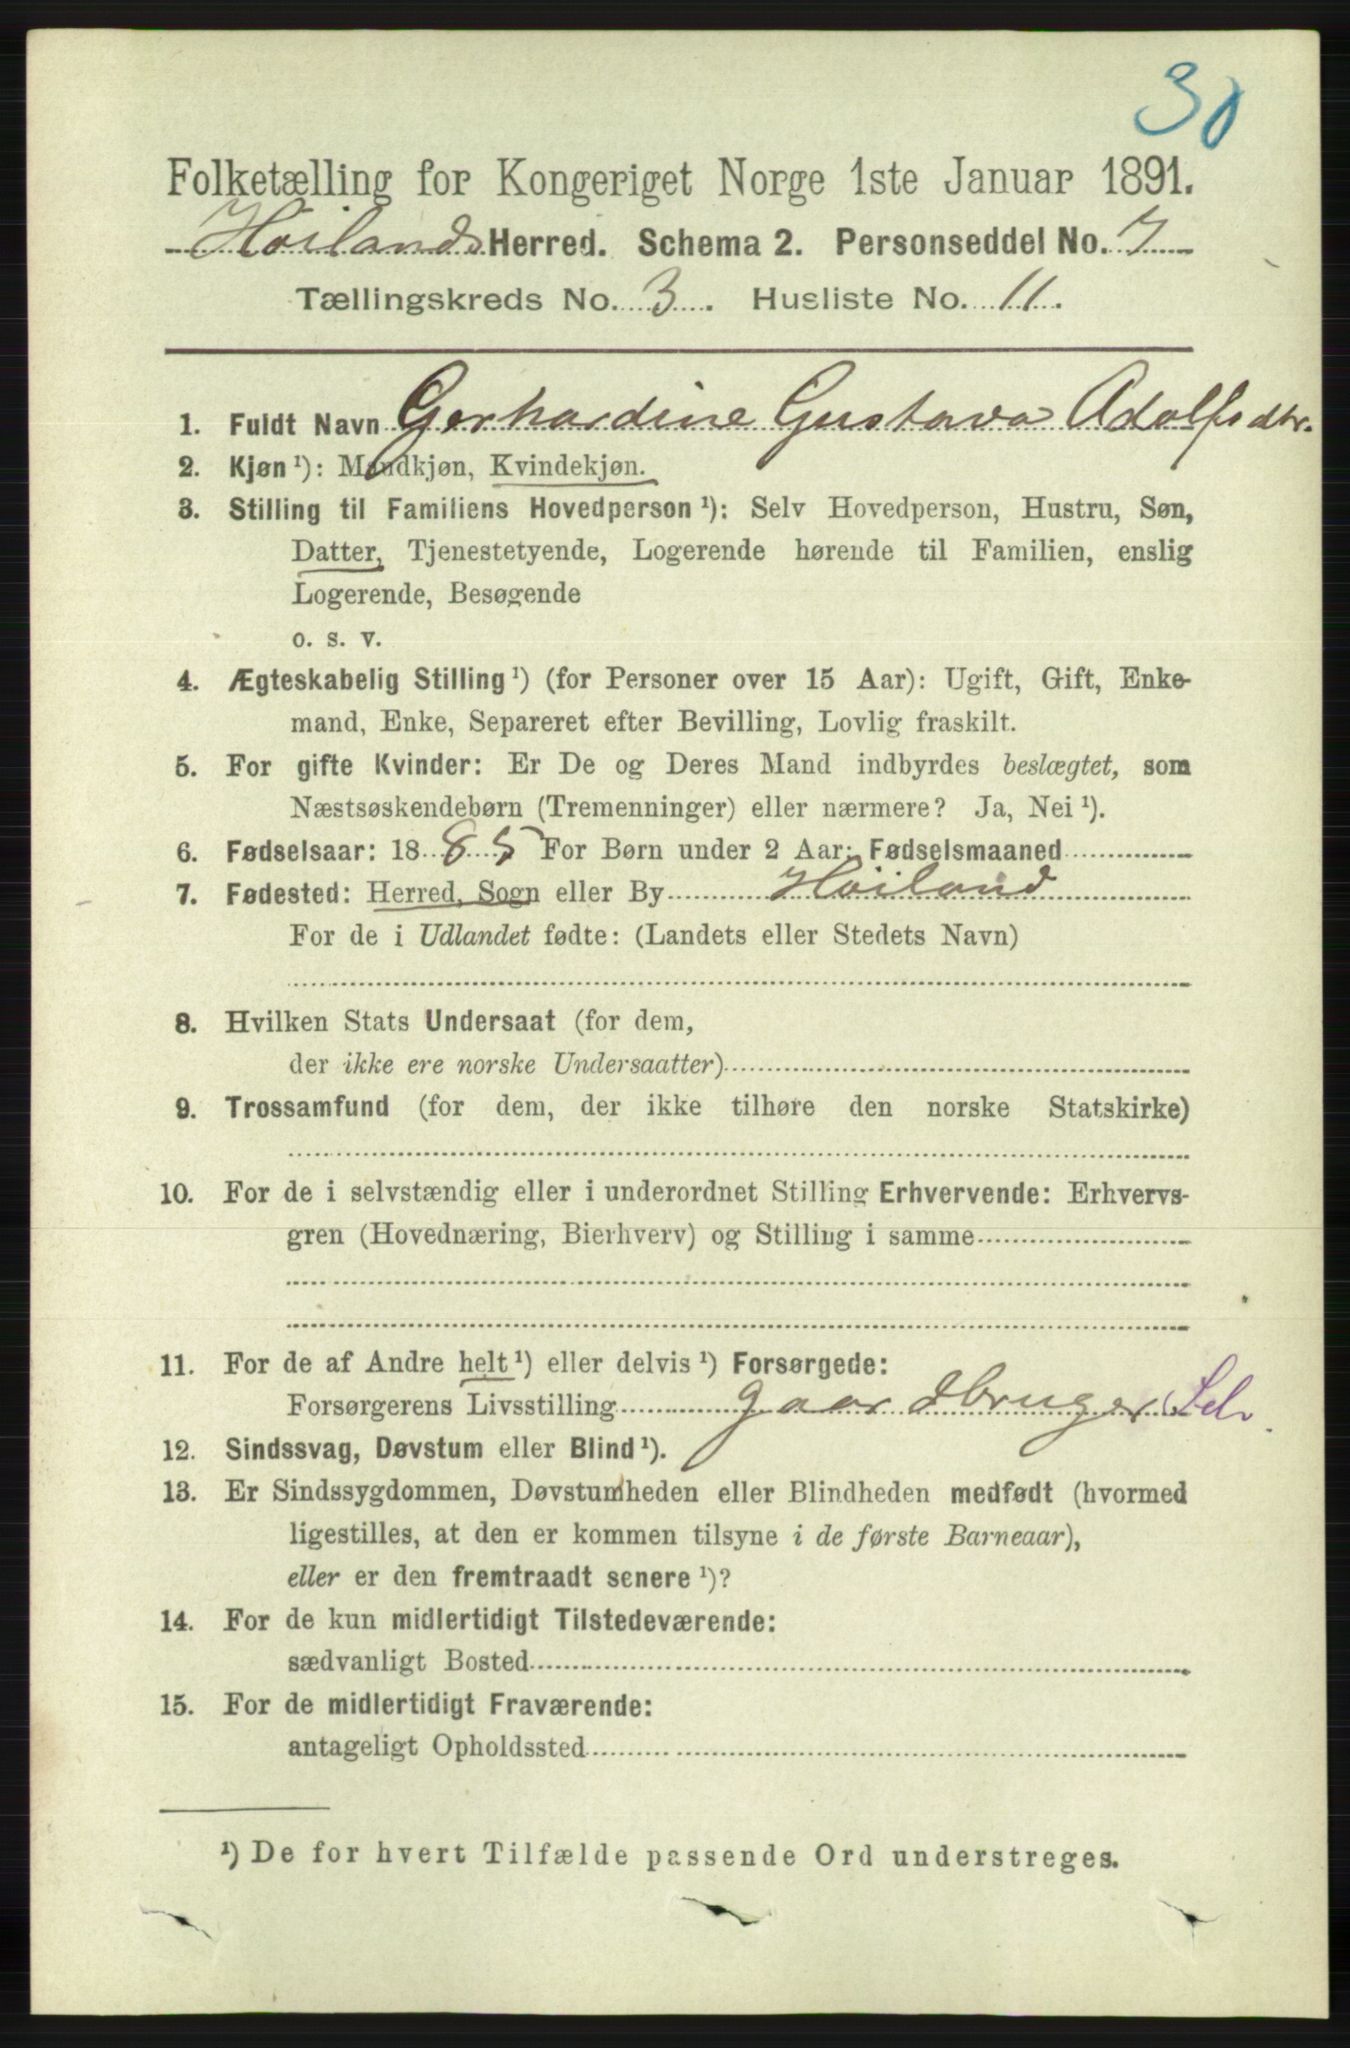 30
Folketælling for Kongeriget Norge 1ste Januar 1891.
Hoilands Herred. Schema 2. Personseddel No. 7
Tællingskreds No. 3. Husliste No. 11.
1. Fuldt Navn Gerhardine Gustava Adolfsdtr.
2. Kjøn ¹): Mandkjøn, Kvindekjøn.
3. Stilling til Familiens Hovedperson ¹): Selv Hovedperson, Hustru, Søn,
Datter, Tjenestetyende, Logerende hørende til Familien, enslig
Logerende, Besøgende
o. s. v.
4. Ægteskabelig Stilling ¹) (for Personer over 15 Aar): Ugift, Gift, Enke-
mand, Enke, Separeret efter Bevilling, Lovlig fraskilt.
5. For gifte Kvinder: Er De og Deres Mand indbyrdes beslægtet, som
Næstsøskendebørn (Tremenninger) eller nærmere? Ja, Nei ¹).
6. Fødselsaar: 1885 For Børn under 2 Aar: Fødselsmaaned
7. Fødested: Herred, Sogn eller By Hoiland
For de i Udlandet fødte: (Landets eller Stedets Navn)
8. Hvilken Stats Undersaat (for dem,
der ikke ere norske Undersaatter)
9. Trossamfund (for dem, der ikke tilhøre den norske Statskirke)
10. For de i selvstændig eller i underordnet Stilling Erhvervende: Erhvervs-
gren (Hovednæring, Bierhverv) og Stilling i samme
11. For de af Andre helt ¹) eller delvis ¹) Forsørgede:
Forsørgerens Livsstilling gaardbruger
12. Sindssvag, Døvstum eller Blind ¹).
13. Er Sindssygdommen, Døvstumheden eller Blindheden medfødt (hvormed
ligestilles, at den er kommen tilsyne i de første Barneaar),
eller er den fremtraadt senere ¹)?
14. For de kun midlertidigt Tilstedeværende:
sædvanligt Bosted
15. For de midlertidigt Fraværende:
antageligt Opholdssted
¹) De for hvert Tilfælde passende Ord understreges.